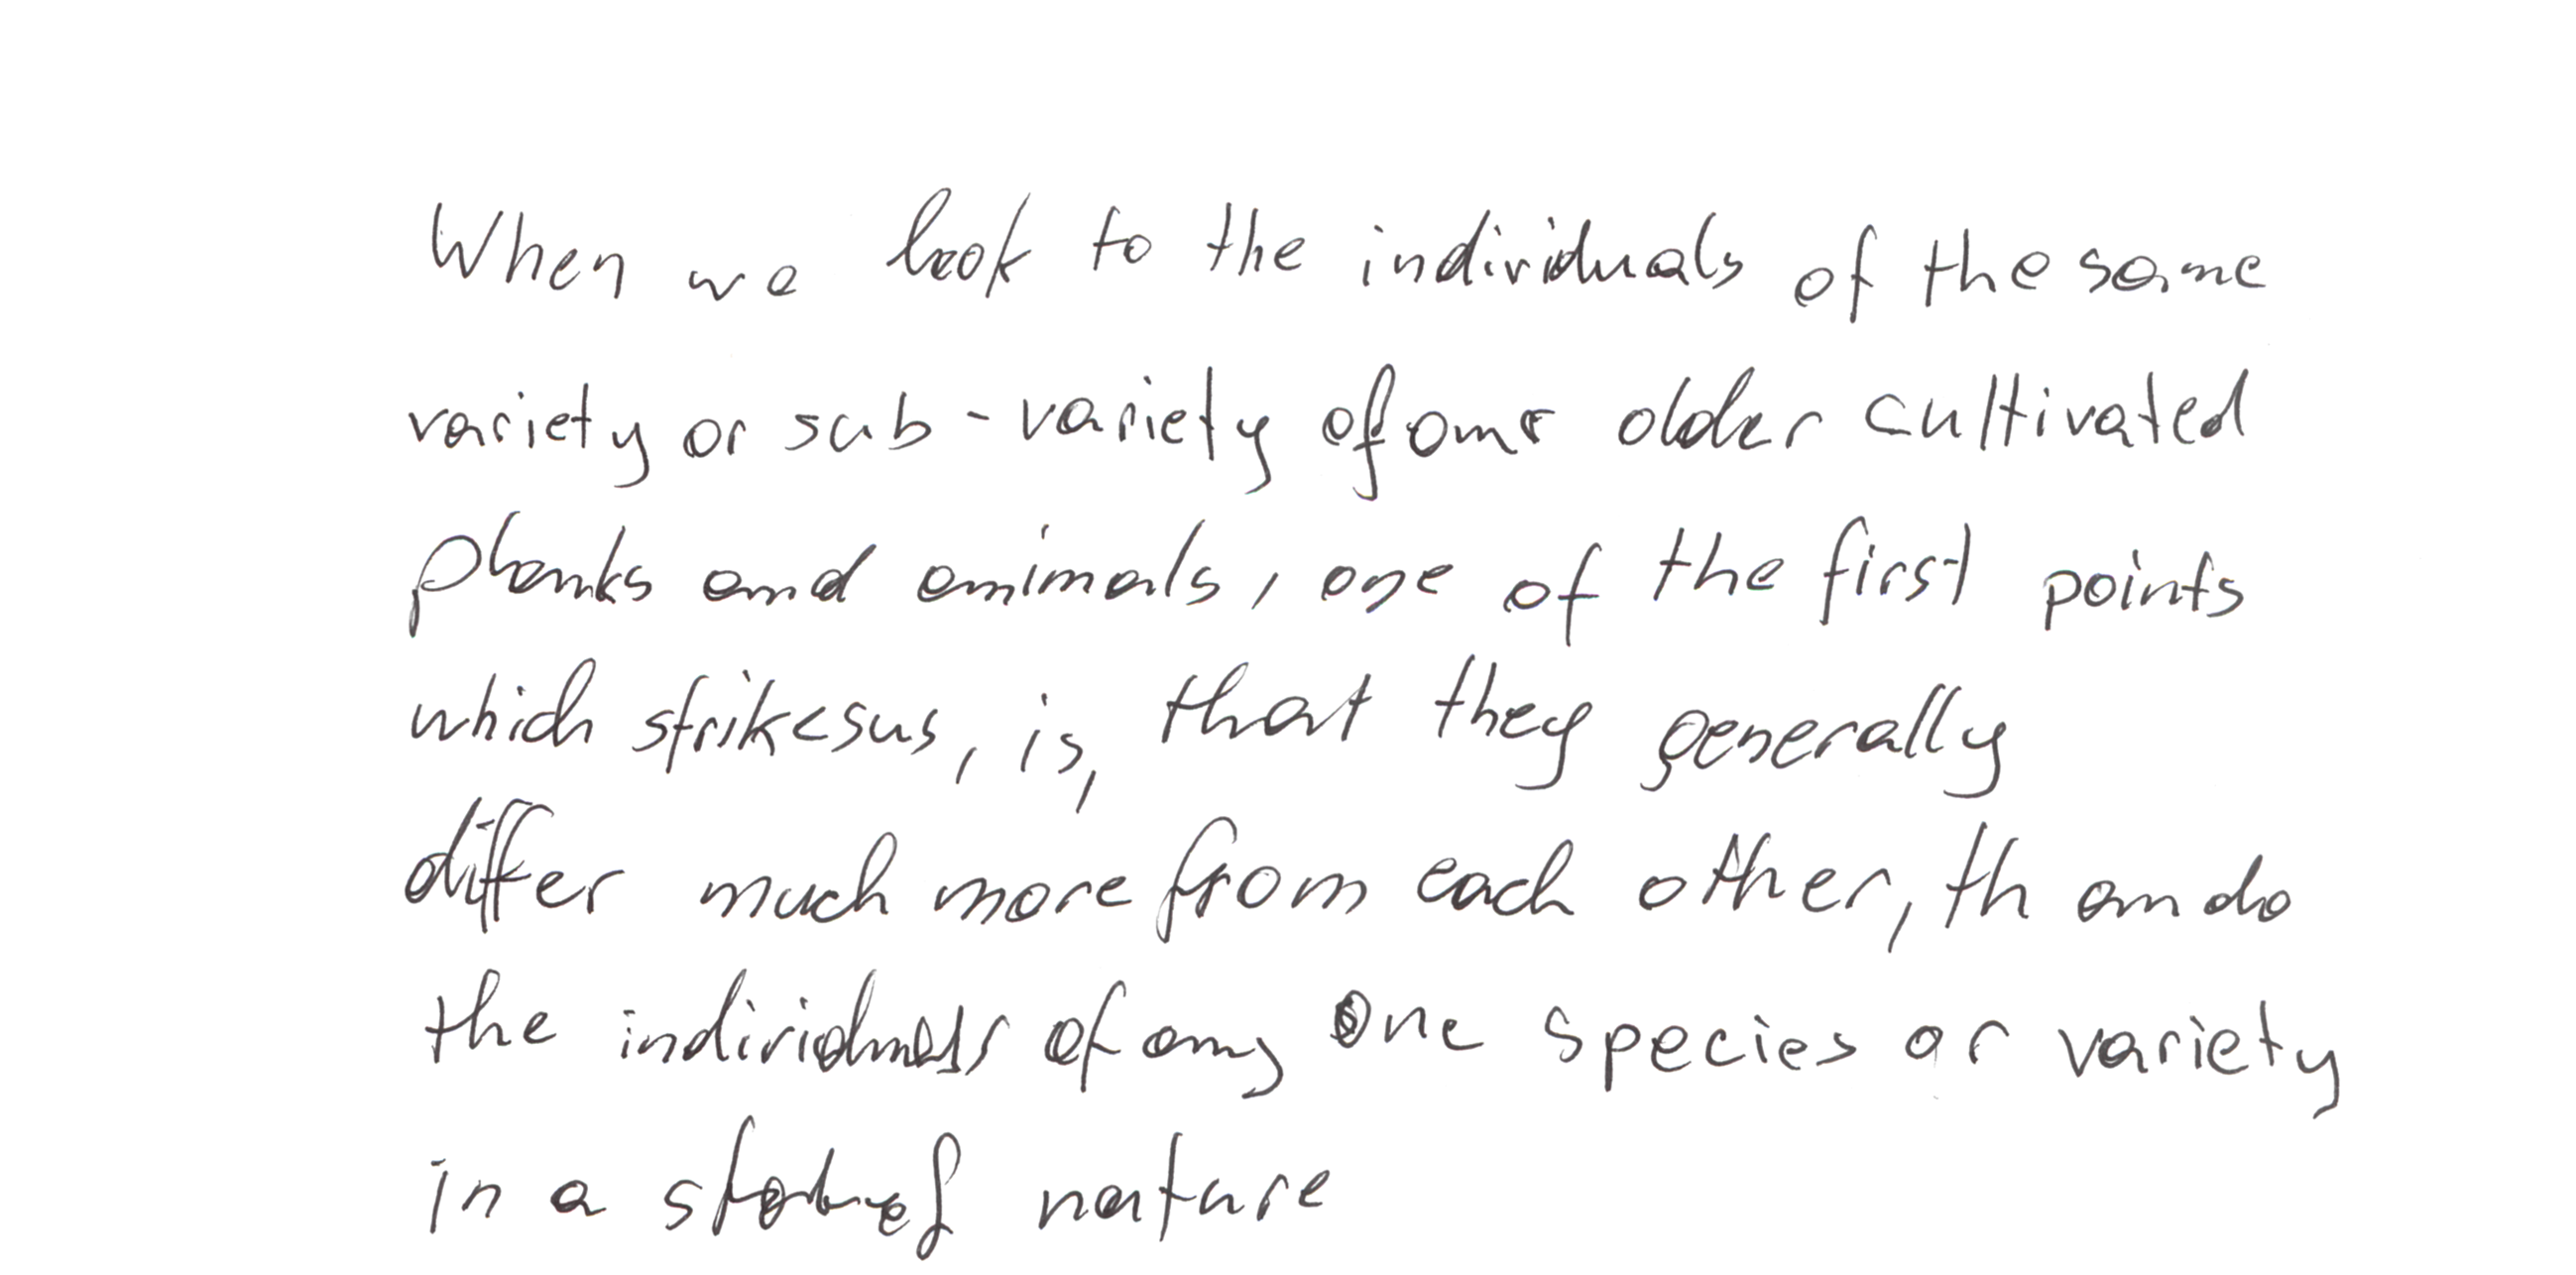 When we look to the individuals of the same
variety or sub-variety of our older cultivated
plants and animals, one of the first points
which strikes us, is, that they generally
differ much more from each other, than do
the individuals of any one species or variety
in a state of nature